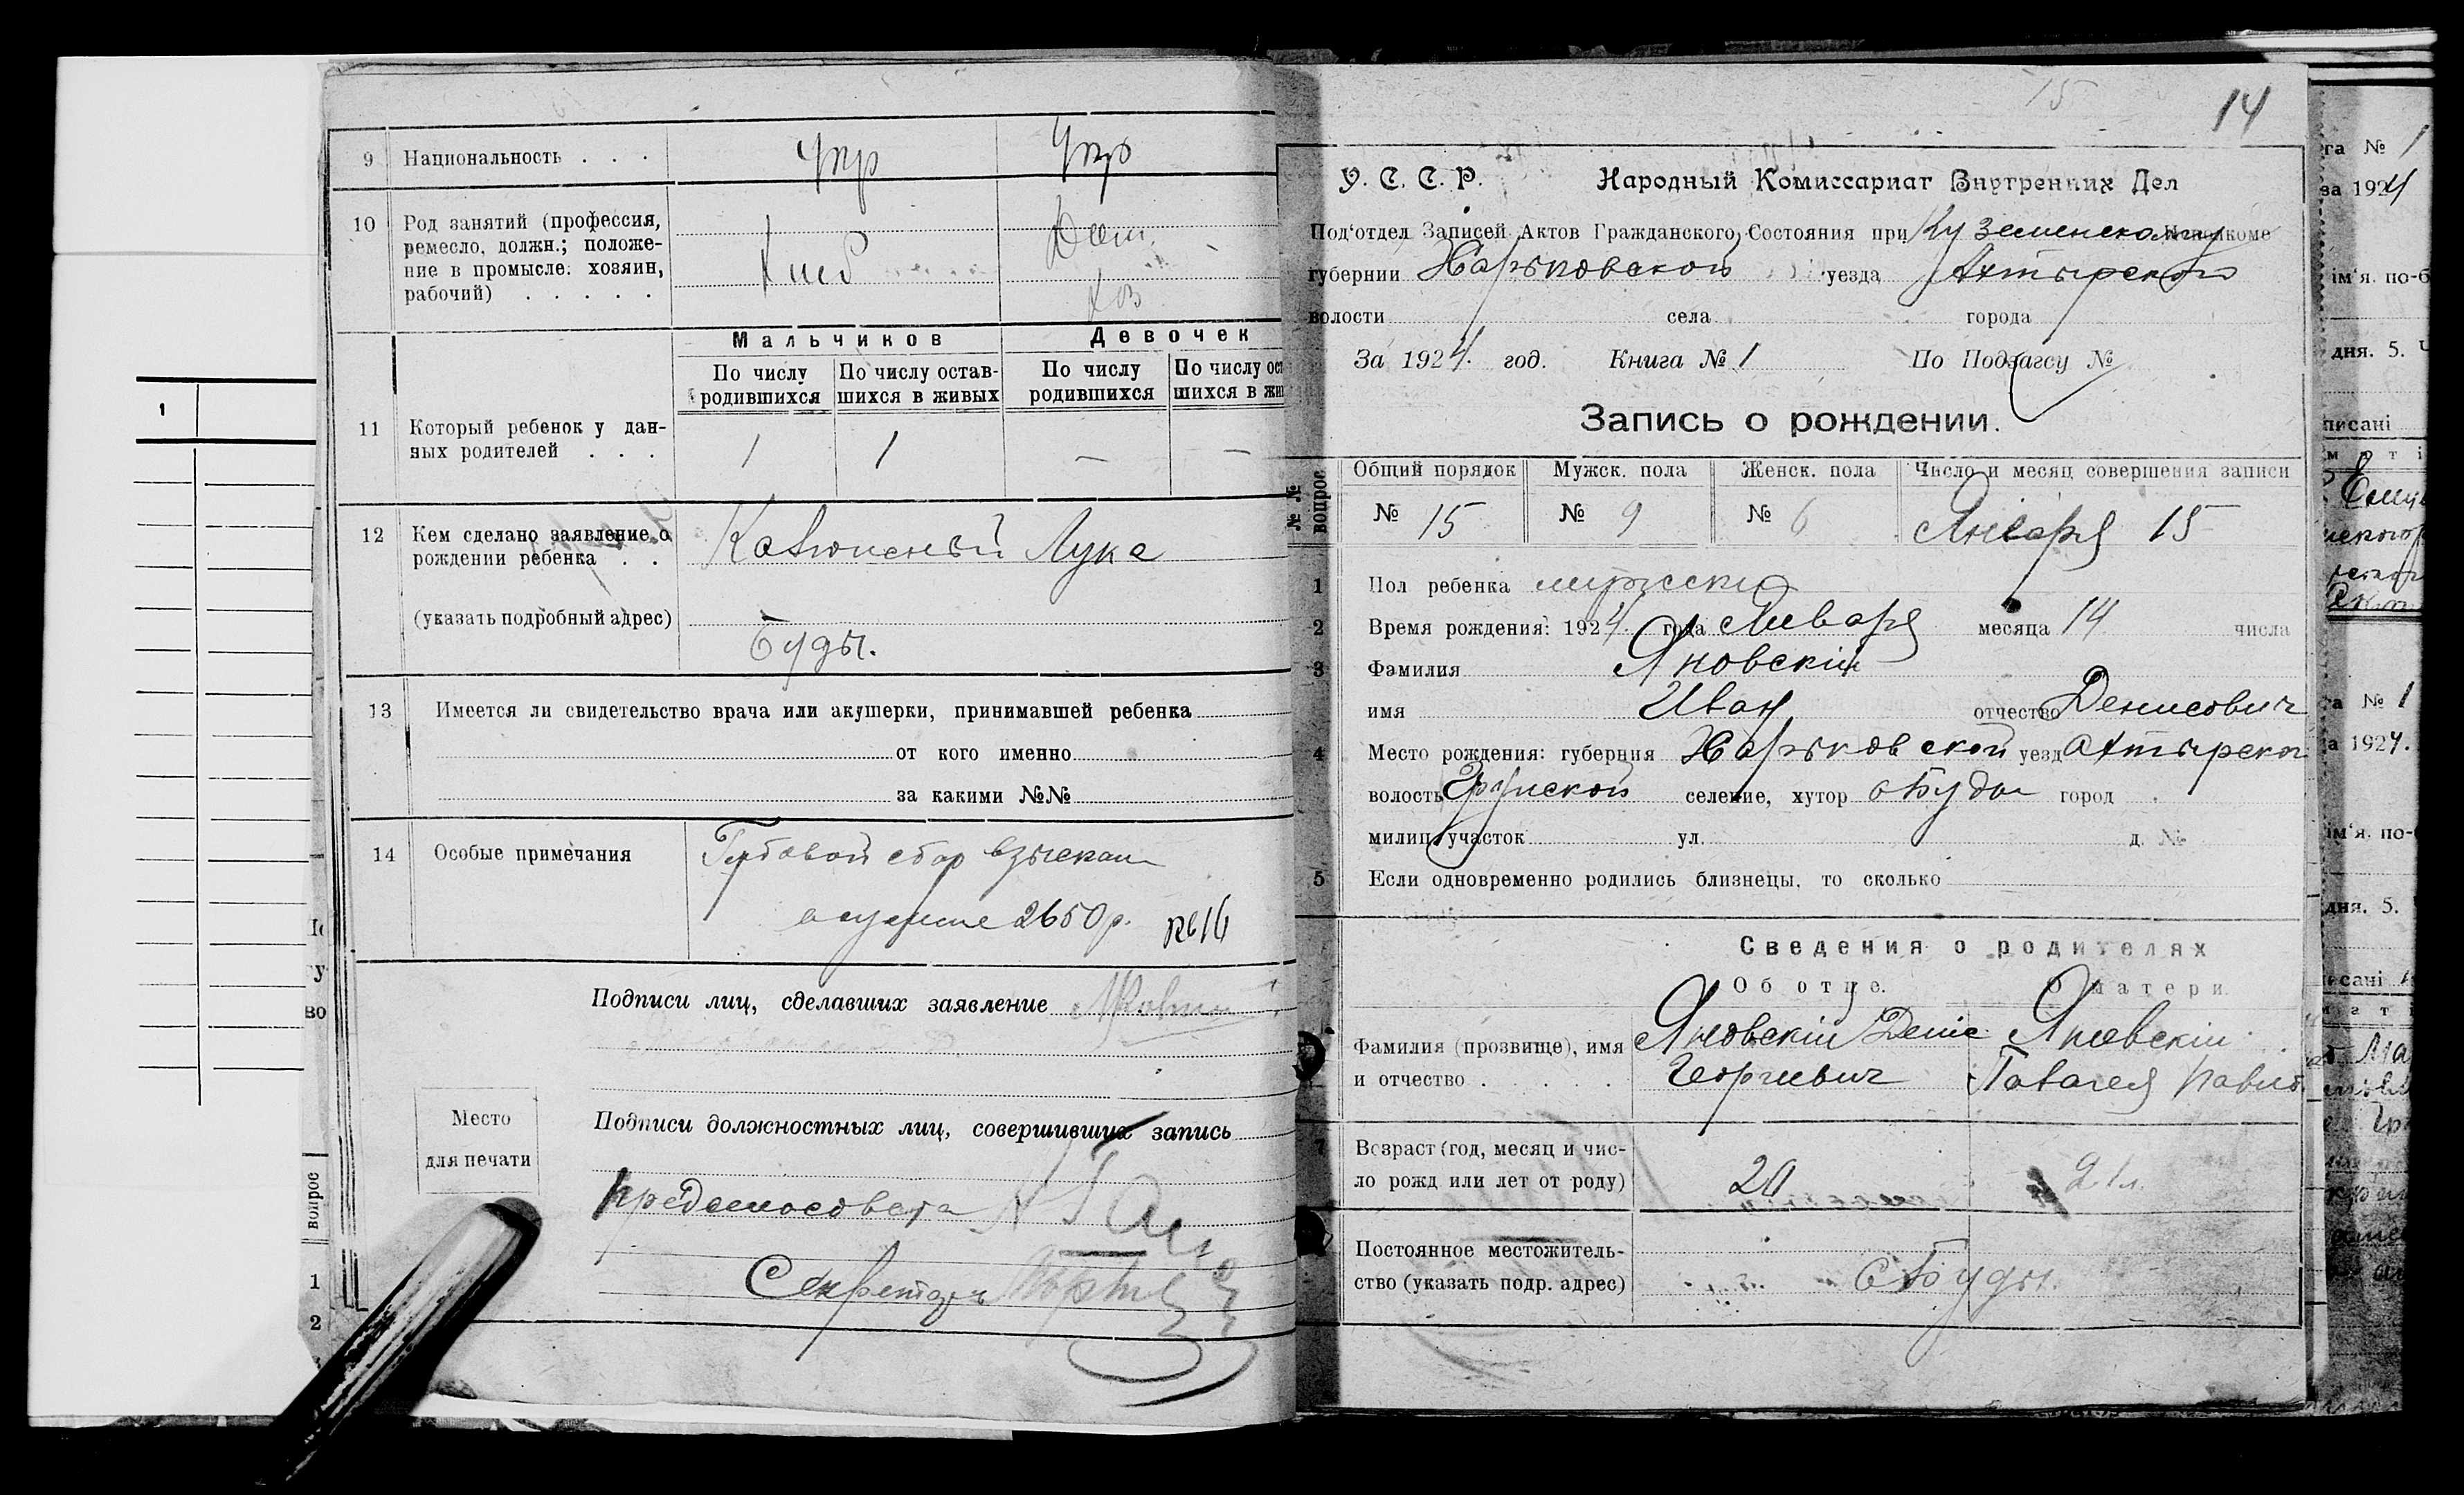 9 Национальность . . . Укр Укр
10 Род занятий (профессия,
ремесло, должн.; положе-
ние в промысле: хозяин,
рабочий) . . . . .
Мальчиков Девочек
По числу
родившихся
По числу остав-
шихся в живых
По числу
родившихся
По числу ос
шихся в жи
11 Который ребенок у дан-
ных родителей . . . 1 1 — —
12 Кем сделано заявление о
рождении ребенка . . Лука
(указать подробный адрес)
Буды.
13 Имеется ли свидетельство врача или акушерки, принимавшей ребенка
от кого именно
за какими №№
14 Особые примечания Гербовой сбор взыскан
в сумме 2650 р.
Подписи лиц, сделавших заявление
Место
для печати
Подписи должностных лиц, совершивших запись
Секретарь
15
14
У. С. С. Р. Народный Комиссариат Внутренних Дел
Под'отдел Записей Актов Гражданского Состояния при Куземенском
губернии Харьковской уезда Ахтырского
волости села города
За 1924. год. Книга № 1 По Подзагсу №
Запись о рождении.
№№ вопрос
Общий порядок Мужск. пола Женск. пола Число и месяц совершения записи
№ 15 № 9 № 6 Января 15
1 Пол ребенка мужски
2 Время рождения: 1924. года Января месяца 14 числа
3 Фамилия Яновскій
имя Иван отчество Денисович
4 Место рождения: губерния Харьковской уезд Ахтырског
волость селение, хутор с Буды город
милиц. участок ул. д. №
5 Если одновременно родились близнецы, то сколько
Сведения о родителях
Об отце. О матери.
Фамилия (прозвище), имя
и отчество . . . .
Яновскій Денис
Георгиевич
Яновскій
Павлов.
7 Возраст (год, месяц и чис-
ло рожд или лет от роду) 20 21 л.
Постоянное местожитель-
ство (указать подр. адрес) с Буды.
га № 1
за 1924
ім'я. по-б
дня. 5. Ч
писані
а № 1
а 1924.
ім'я. по-
дня. 5.
вопрос
1
2